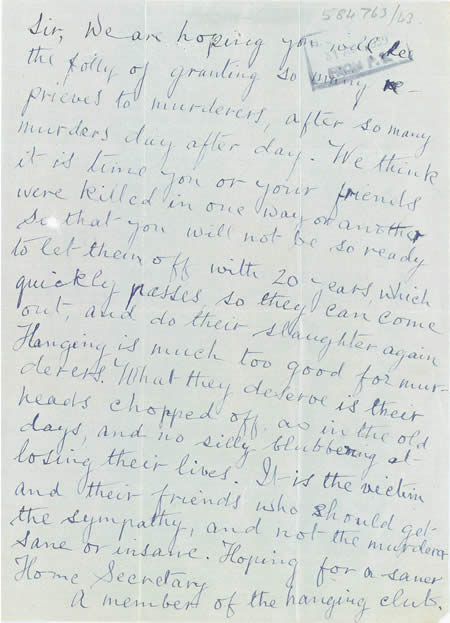 584763/43.
FROM P.
Sir, We are hoping you will see
the folly of granting so many re-
prieves to murderers, after so many
murders day after day. We think
it is time you or your friends
were killed in one way or another
so that you will not be so ready
to let them off with 20 years, which
quickly passes, so they can come
out, and do their slaughter again
Hanging is much too good for mur-
derers. What they deserve is their
heads chopped off as in the old
days, and no silly blubbering at
losing their lives. It is the victim
and their friends who should get
the sympathy, and not the murderer
sane or insane. Hoping for a saner
Home Secretary
A member of the hanging club.